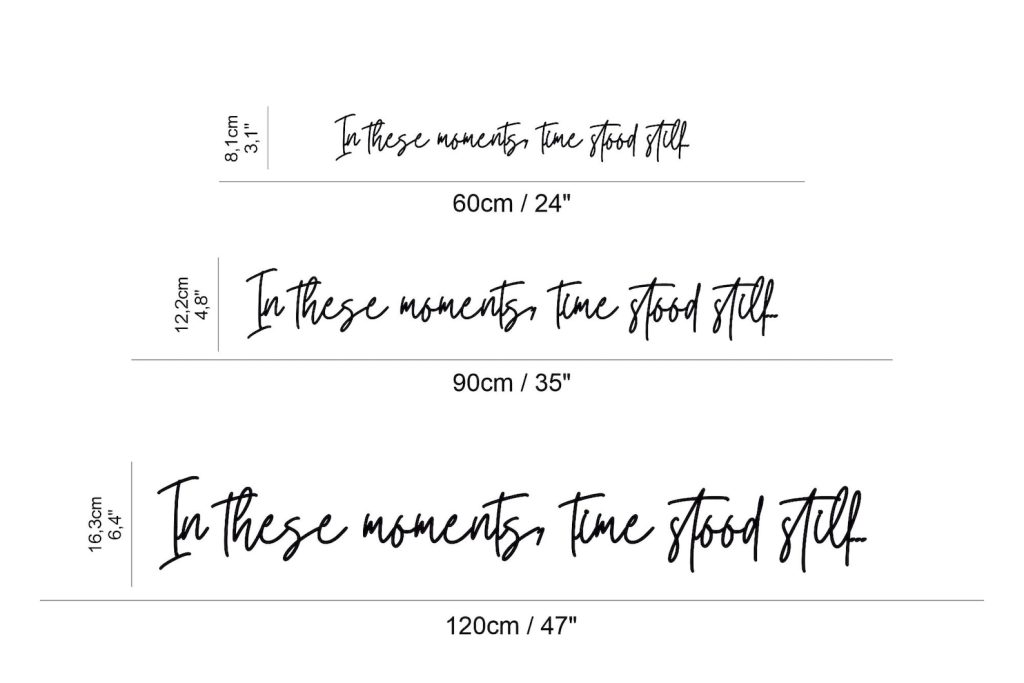 8,1cm
3,1"
In these moments, time stood still...
60cm / 24"
12,2cm
4,8"
In these moments, time stood still...
90cm / 35"
16,3cm
6,4"
In these moments, time stood still...
120cm / 47"